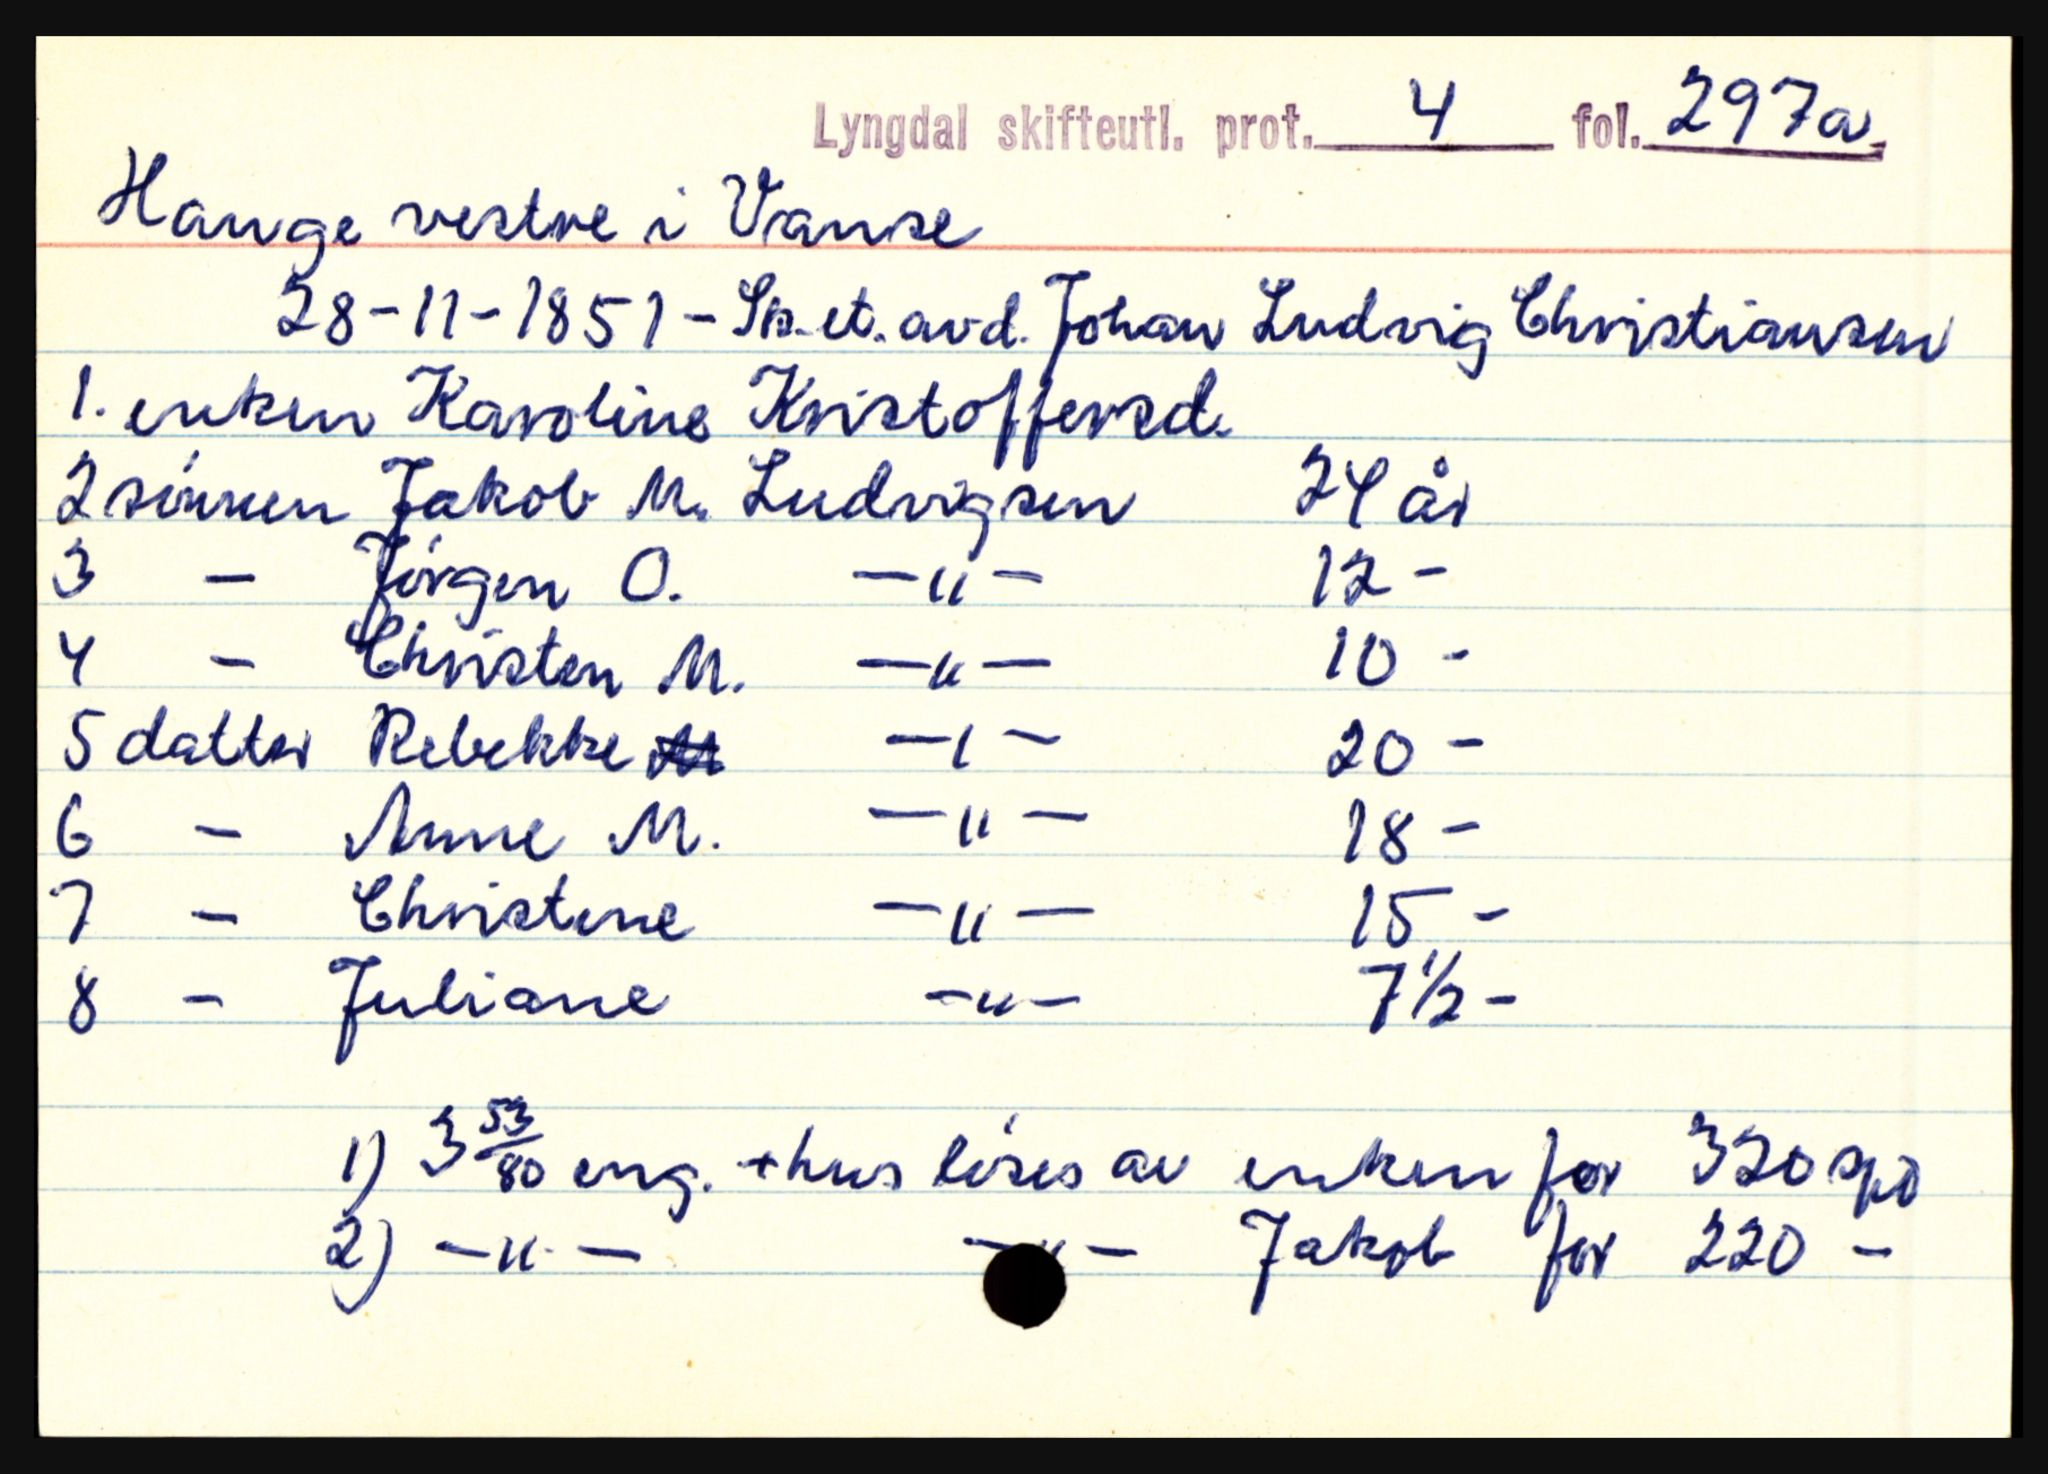 Lyngdal skifteutl. prot. 4 fol. 297a.
Hauge vestre i Vanse
28-11-1851 - Sk. et. avd. Johan Ludvig Christiansen
1. enken Karoline Kristoffersd.
2 sönnen Jakob M. Ludvigsen 24 år
3 - Jörgen O. -"- 12 -
4 - Christen M. -"- 10 -
5 datter Rebekke -"- 20 -
6 - Anne M. -"- 18 -
7 - Christine -"- 15 -
8 - Juliane -"- 7 1/2 -
1) 3 53/80 eng. + hus löses av enken for 320 spd
2) -"- -"- Jakob for 220 -